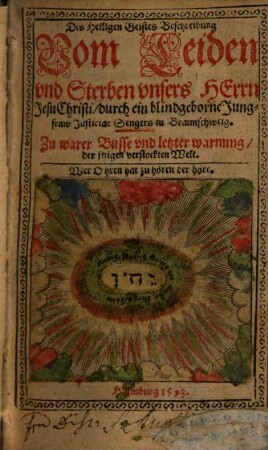 Des Heiligen Geistes Beschreibung
Vom Leiden
vnd Sterben vnsers HErrn
Jesu Christi/durch ein blindgeborne Jung-
fraw Justiciae Sengers in Braunschweig.
Zu warer Busse vnd letzter warnung/
der itzigen verstockten Welt.
Wer Ohren hat zu hören der höre.
Heilig, Heilig, Heilig
Hamburg 1593.